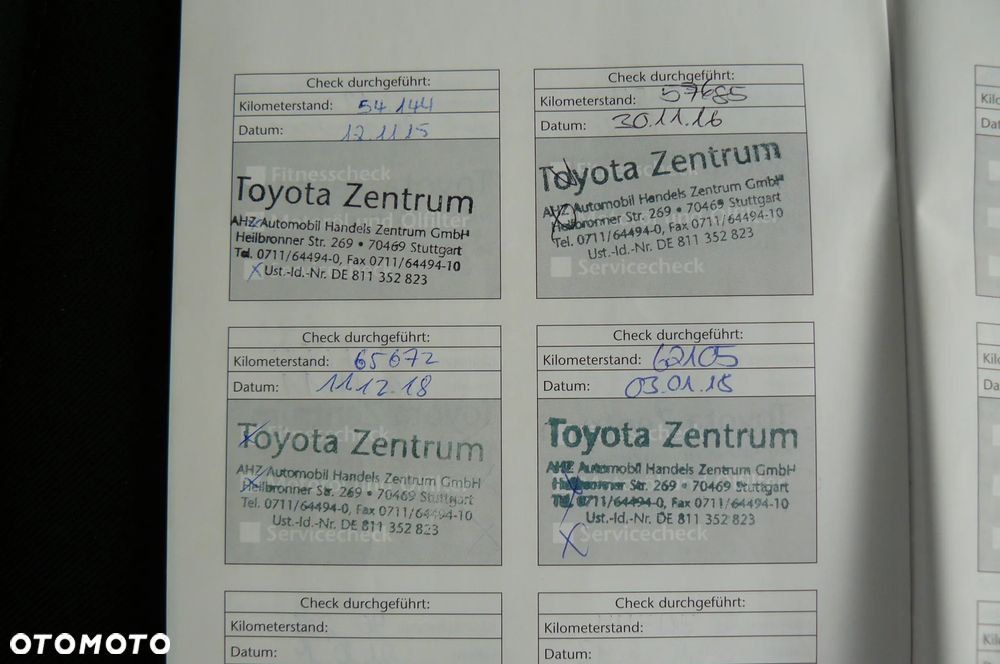 Check durchgeführt:
Kilometerstand: 54 144
Datum: 12.11.15
Fitnesscheck
Toyota Zentrum
Motoröl und Ölfilter
AHZ Automobil Handels Zentrum GmbH
Heilbronner Str. 269 • 70469 Stuttgart
Tel. 0711/64494-0, Fax 0711/64494-10
x Ust.-Id.-Nr. DE 811 352 823
Check durchgeführt:
Kilometerstand: 57685
Datum: 30.11.16
Toyota Zentrum
AHZ Automobil Handels Zentrum GmbH
Heilbronner Str. 269 • 70469 Stuttgart
Tel. 0711/64494-0, Fax 0711/64494-10
Ust.-Id.-Nr. DE 811 352 823
Servicecheck
Check durchgeführt:
Kilometerstand: 65672
Datum: 11.12.18
Fitnesscheck
Toyota Zentrum
AHZ Automobil Handels Zentrum GmbH
Heilbronner Str. 269 • 70469 Stuttgart
Tel. 0711/64494-0, Fax 0711/64494-10
Ust.-Id.-Nr. DE 811 352 823
Servicecheck
Check durchgeführt:
Kilometerstand: 62105
Datum: 03.01.18
Toyota Zentrum
AHZ Automobil Handels Zentrum GmbH
Heilbronner Str. 269 • 70469 Stuttgart
Tel. 0711/64494-0, Fax 0711/64494-10
Ust.-Id.-Nr. DE 811 352 823
x Servicecheck
Check durchgeführt:
Kilometerstand:
Datum:
Check durchgeführt:
Kilometerstand:
Datum:
OTOMOTO